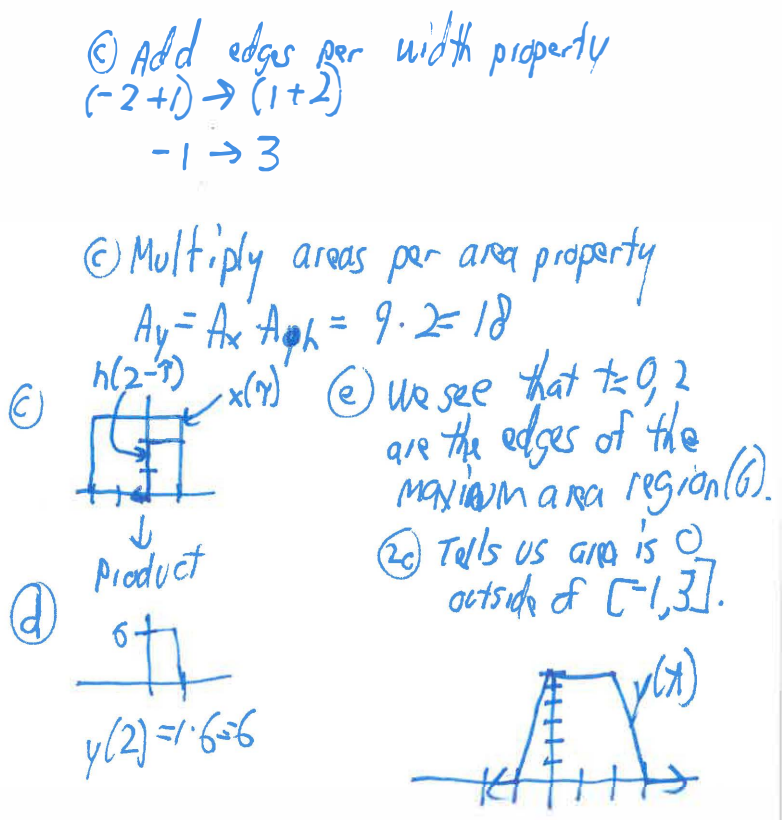 ⓒ Add edges per width property
(-2+1) → (1+2)
-1 → 3
ⓒ Multiply areas per area property
Ay = Ax Ah = 9·2 = 18
ⓒ
h(2-τ)
x(τ)
↓
Product
ⓓ
6
y(2) = 1·6 = 6
ⓔ We see that t=0,2
are the edges of the
maximum area region (6).
2c Tells us area is 0
outside of [-1,3].
y(t)